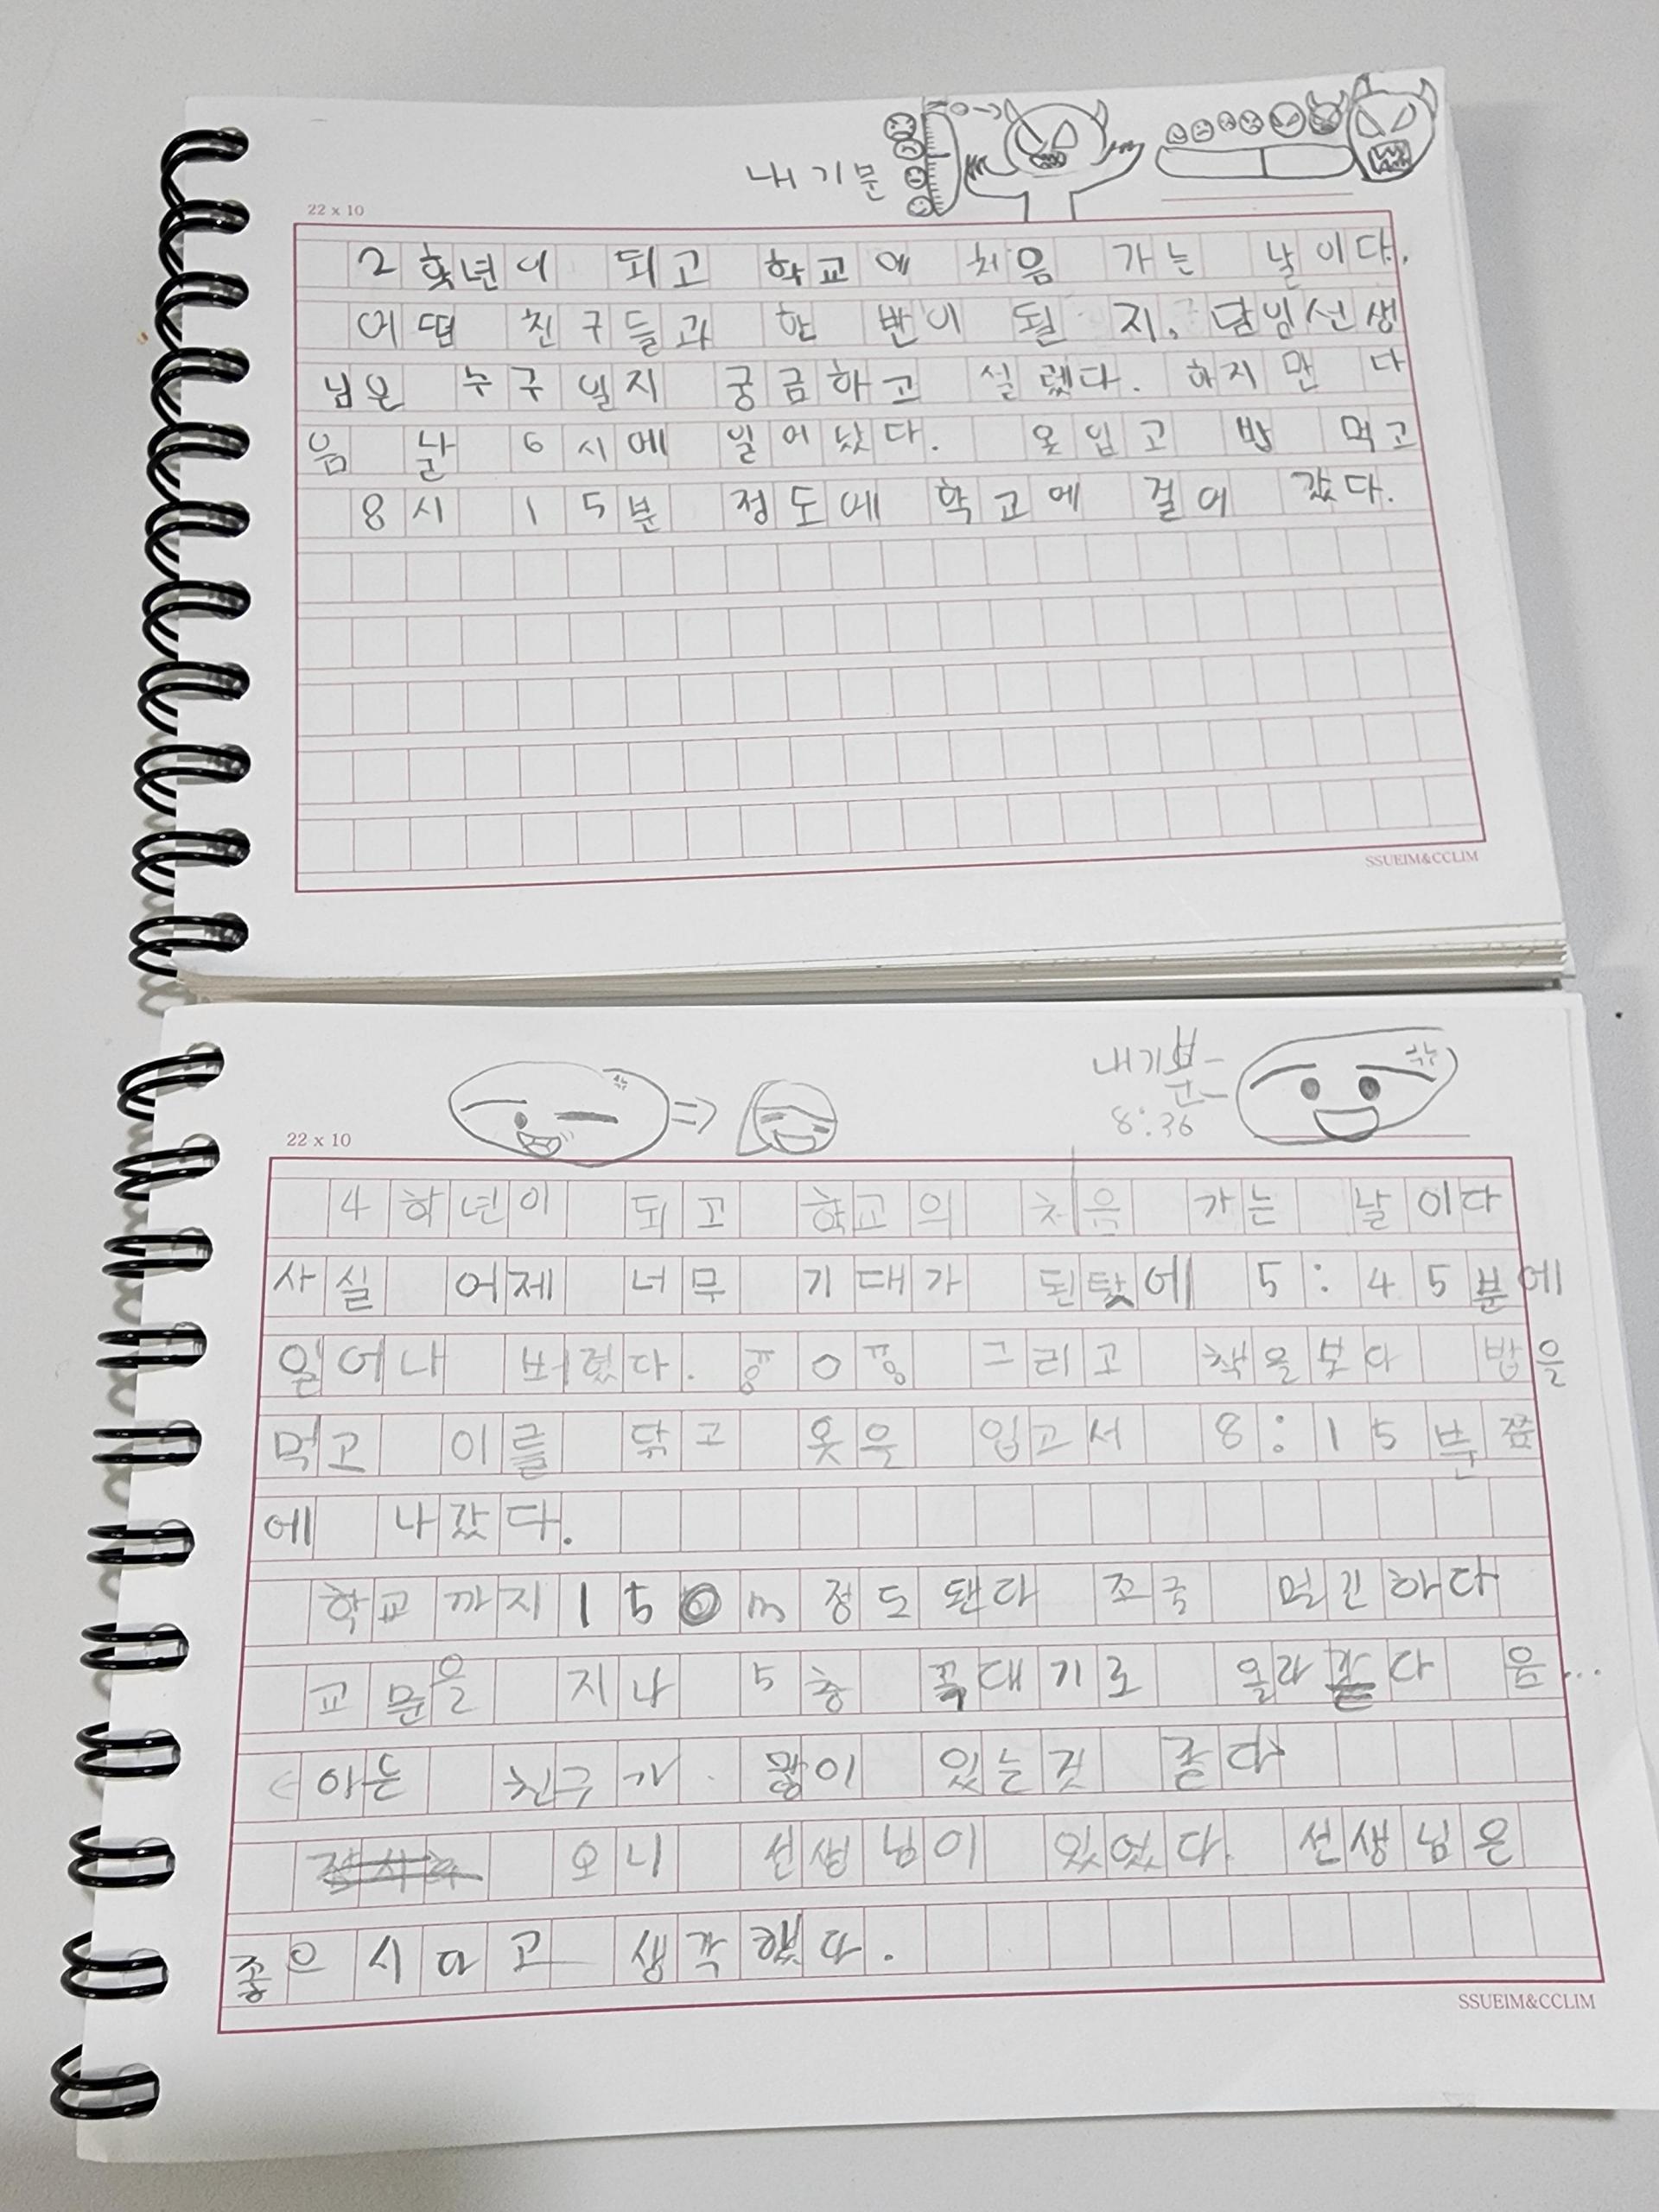 내 기분
22 x 10
2학년이 되고 학교에 처음 가는 날이다.
어떤 친구들과 한 반이 될 지, 담임선생
님은 누구일지 궁금하고 설렜다. 하지만 다
음 날 6시에 일어났다. 옷입고 밥 먹고
8시 15분 정도에 학교에 걸어 갔다.
SSUEIM&CCLIM
내기분
8:36
22 x 10
4학년이 되고 학교의 처음 가는 날이다
사실 어제 너무 기대가 된탓에 5:45분에
일어나 버렸다. 그리고 책을보다 밥을
먹고 이를 닦고 옷을 입고서 8:15분쯤
에 나갔다.
학교까지150m정도됀다 조국 먼긴하다
교문을 지나 5층 꼭대기로 올라갔다 음...
아는 친구가 많이 있는것 좋다
오니 선생님이 있었다. 선생님은
좋으시다고 생각했다.
SSUEIM&CCLIM